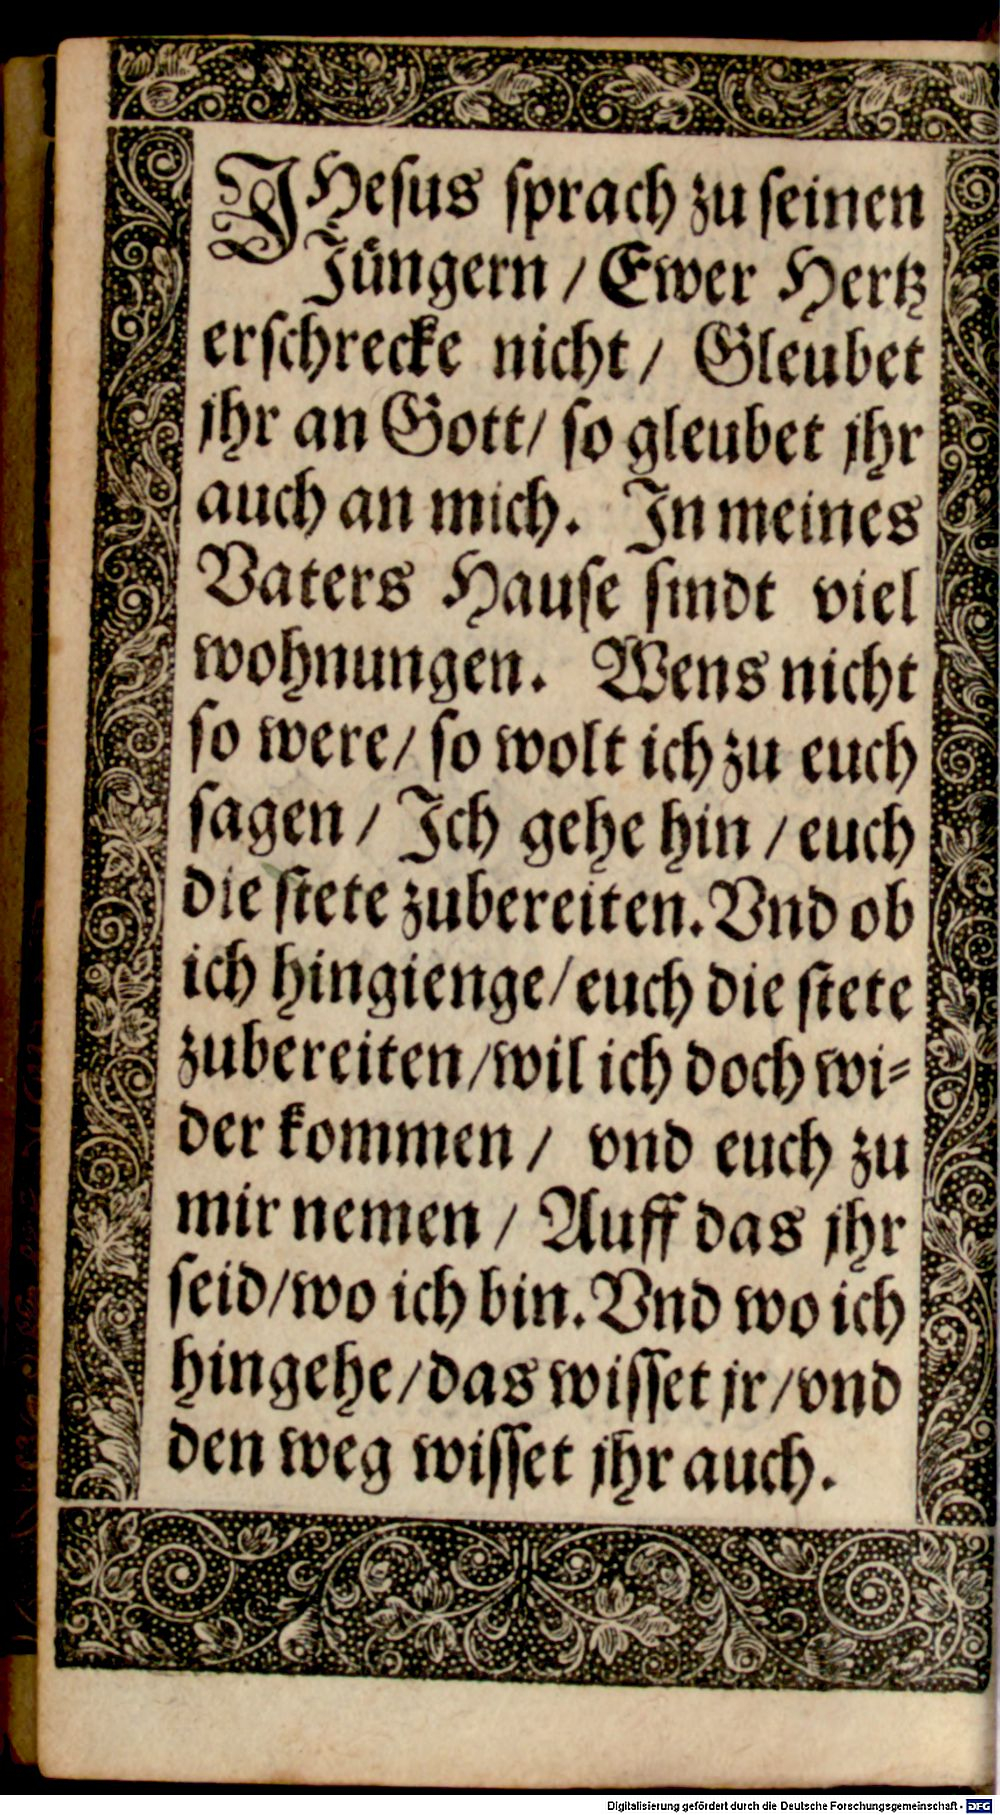 JHesus sprach zu seinen
Jüngern / Ewer Hertz
erschrecke nicht / Gleubet
jhr an Gott / so gleubet jhr
auch an mich. In meines
Vaters Hause sindt viel
wohnungen. Wens nicht
so were / so wolt ich zu euch
sagen / Ich gehe hin / euch
die stete zubereiten. Vnd ob
ich hingienge / euch die stete
zubereiten / wil ich doch wi-
der kommen / vnd euch zu
mir nemen / Auff das jhr
seid / wo ich bin. Vnd wo ich
hingehe / das wisset jr / vnd
den weg wisset jhr auch.
Digitalisierung gefördert durch die Deutsche Forschungsgemeinschaft - DFG